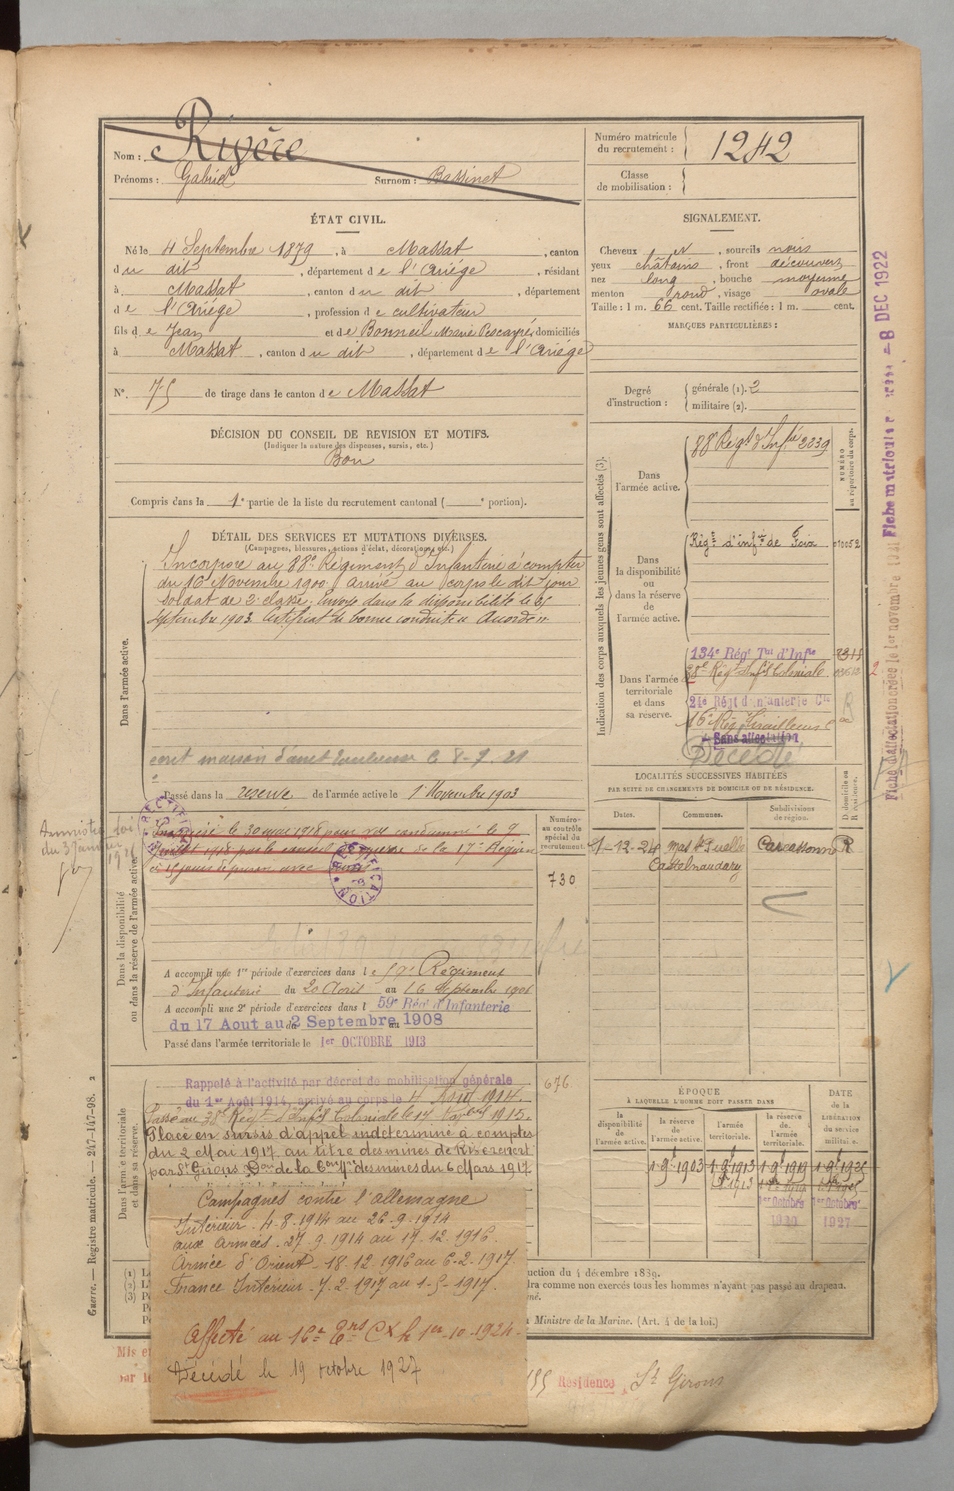 Nom : Rivère
Prénoms : Gabriel Surnom : Bassinet
Numéro matricule du recrutement : 1242
Classe de mobilisation :
ÉTAT CIVIL.
Né le 4 Septembre 1879, à Massat, canton
du dit, département de l'Ariége, résidant
à Massat, canton du dit, département
de l'Ariége, profession de cultivateur
fils de Jean et de Bonneil Marie Pescayré domiciliés
à Massat, canton du dit, département de l'Ariége
N°. 75 de tirage dans le canton de Massat
SIGNALEMENT.
Cheveux N, sourcils noirs
yeux châtains, front découvert
nez long, bouche moyenne
menton rond, visage ovale
Taille : 1 m. 66 cent. Taille rectifiée : 1 m. cent.
MARQUES PARTICULIÈRES :
Degré d'instruction : générale (1). 2
militaire (2).
DÉCISION DU CONSEIL DE REVISION ET MOTIFS.
(Indiquer la nature des dispenses, sursis, etc.)
Bon
Compris dans la 1e partie de la liste du recrutement cantonal ( e portion).
DÉTAIL DES SERVICES ET MUTATIONS DIVERSES.
(Campagnes, blessures, actions d'éclat, décorations, etc.)
Dans l'armée active.
Incorporé au 88e Régiment d'Infanterie à compter
du 16 Novembre 1900. Arrivé au corps le dit jour
soldat de 2e classe. Envoyé dans la disponibilité le
Septembre 1903. Certificat de bonne conduite "Accordé".
8-7-21
Passé dans la réserve de l'armée active le 1 Novembre 1903
Indication des corps auxquels les jeunes gens sont affectés (3).
NUMÉRO au répertoire du corps.
Dans l'armée active.
88 Régt d'Infie 2039
Dans la disponibilité ou dans la réserve de l'armée active.
Régt d'infie de Foix
Dans l'armée territoriale et dans sa réserve.
134e Régt Tal d'Infie
38e Régt d'Infie Coloniale
21e Régt d'Infanterie Cle
16e Rég Tirailleurs
Sans affectation
Décédé
LOCALITÉS SUCCESSIVES HABITÉES
PAR SUITE DE CHANGEMENTS DE DOMICILE OU DE RÉSIDENCE.
Dates. Communes. Subdivisions de région. D domicile ou R résidence.
1-12-24 Mas Stes Puelles Carcassonne R
Castelnaudary
Dans la disponibilité ou dans la réserve de l'armée active.
Amnistié loi
RECTIFICATION
RECTIFICATION
Numéro au contrôle spécial du recrutement.
730
A accompli une 1re période d'exercices dans le 59e Régiment
d'Infanterie du 20 Août au 16 Septembre 1906
A accompli une 2e période d'exercices dans l 59e Régt d'Infanterie
du 17 Aout au 2 Septembre 1908
Passé dans l'armée territoriale le 1er OCTOBRE 1913
Dans l'armée territoriale et dans sa réserve.
676
Rappelé à l'activité par décret de mobilisation générale
du 1er Août 1914, arrivé au corps le 4 Août 1914.
Passé au 38e Régt d'Infie Coloniale le 14 1915.
Placé en sursis d'appel indéterminé à compter
du 2 Mai 1917, au titre des mines de
par St Girons. Don de la 6ème des mines du 6 Mars 1917
ÉPOQUE
À LAQUELLE L'HOMME DOIT PASSER DANS
la disponibilité de l'armée active.
la réserve de l'armée active.
l'armée territoriale.
la réserve de l'armée territoriale.
DATE de la LIBÉRATION du service militaire.
1er Octobre 1er Octobre
1920 1927
Campagnes contre l'allemagne
Intérieur. 4-8-1914 au 26-9-1914
aux Armées. 27-9-1914 au 17.12.1916.
Armée d'Orient 18.12.1916 au 6-2.1917.
France Intérieur 7-2.1917 au 1-5-1917.
Affecté au 16e le 1er-10-1924
Décédé le 19 octobre 1927
uction du 4 décembre 1889.
dra comme non exercés tous les hommes n'ayant pas passé au drapeau.
u Ministre de la Marine. (Art. 4 de la loi.)
Mis e
par l
Résidence, St Girons
Guerre. — Registre matricule. — 247-147-98.
8 DEC 1922